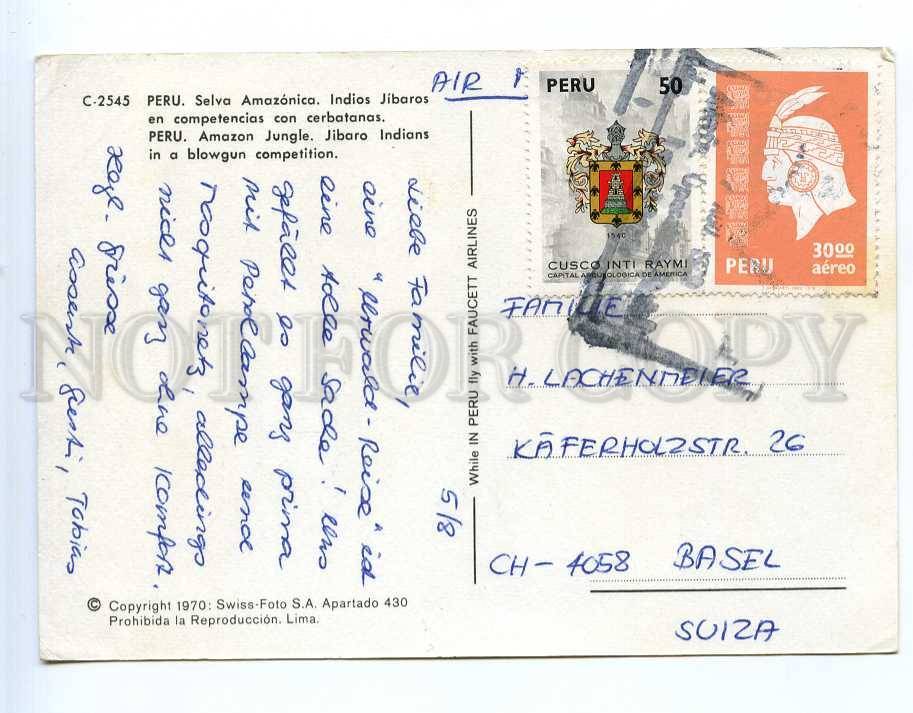 C-2545 PERU. Selva Amazónica. Indios Jíbaros
en competencias con cerbatanas.
PERU. Amazon Jungle. Jibaro Indians
in a blowgun competition.
AIR
PERU 50
1540
CUSCO INTI RAYMI
CAPITAL ARQUEOLOGICA DE AMERICA
30.00
PERU aéreo
Liebe Familie,
eine "Urwald-Reise" ist
eine tolle Sache! Uns
gefällt es ganz prima
mit Petrollampe und
Moquitonetz, allerdings
nicht ganz ohne Komfort.
Hzgl. Grüsse
Gusti, Tobias
5/8
While IN PERU fly with FAUCETT AIRLINES
FAMILIE
H. LACHENMEIER
KÄFERHOLZSTR. 26
CH-4058 BASEL
SUIZA
© Copyright 1970: Swiss-Foto S.A. Apartado 430
Prohibida la Reproducción. Lima.
NOT FOR COPY